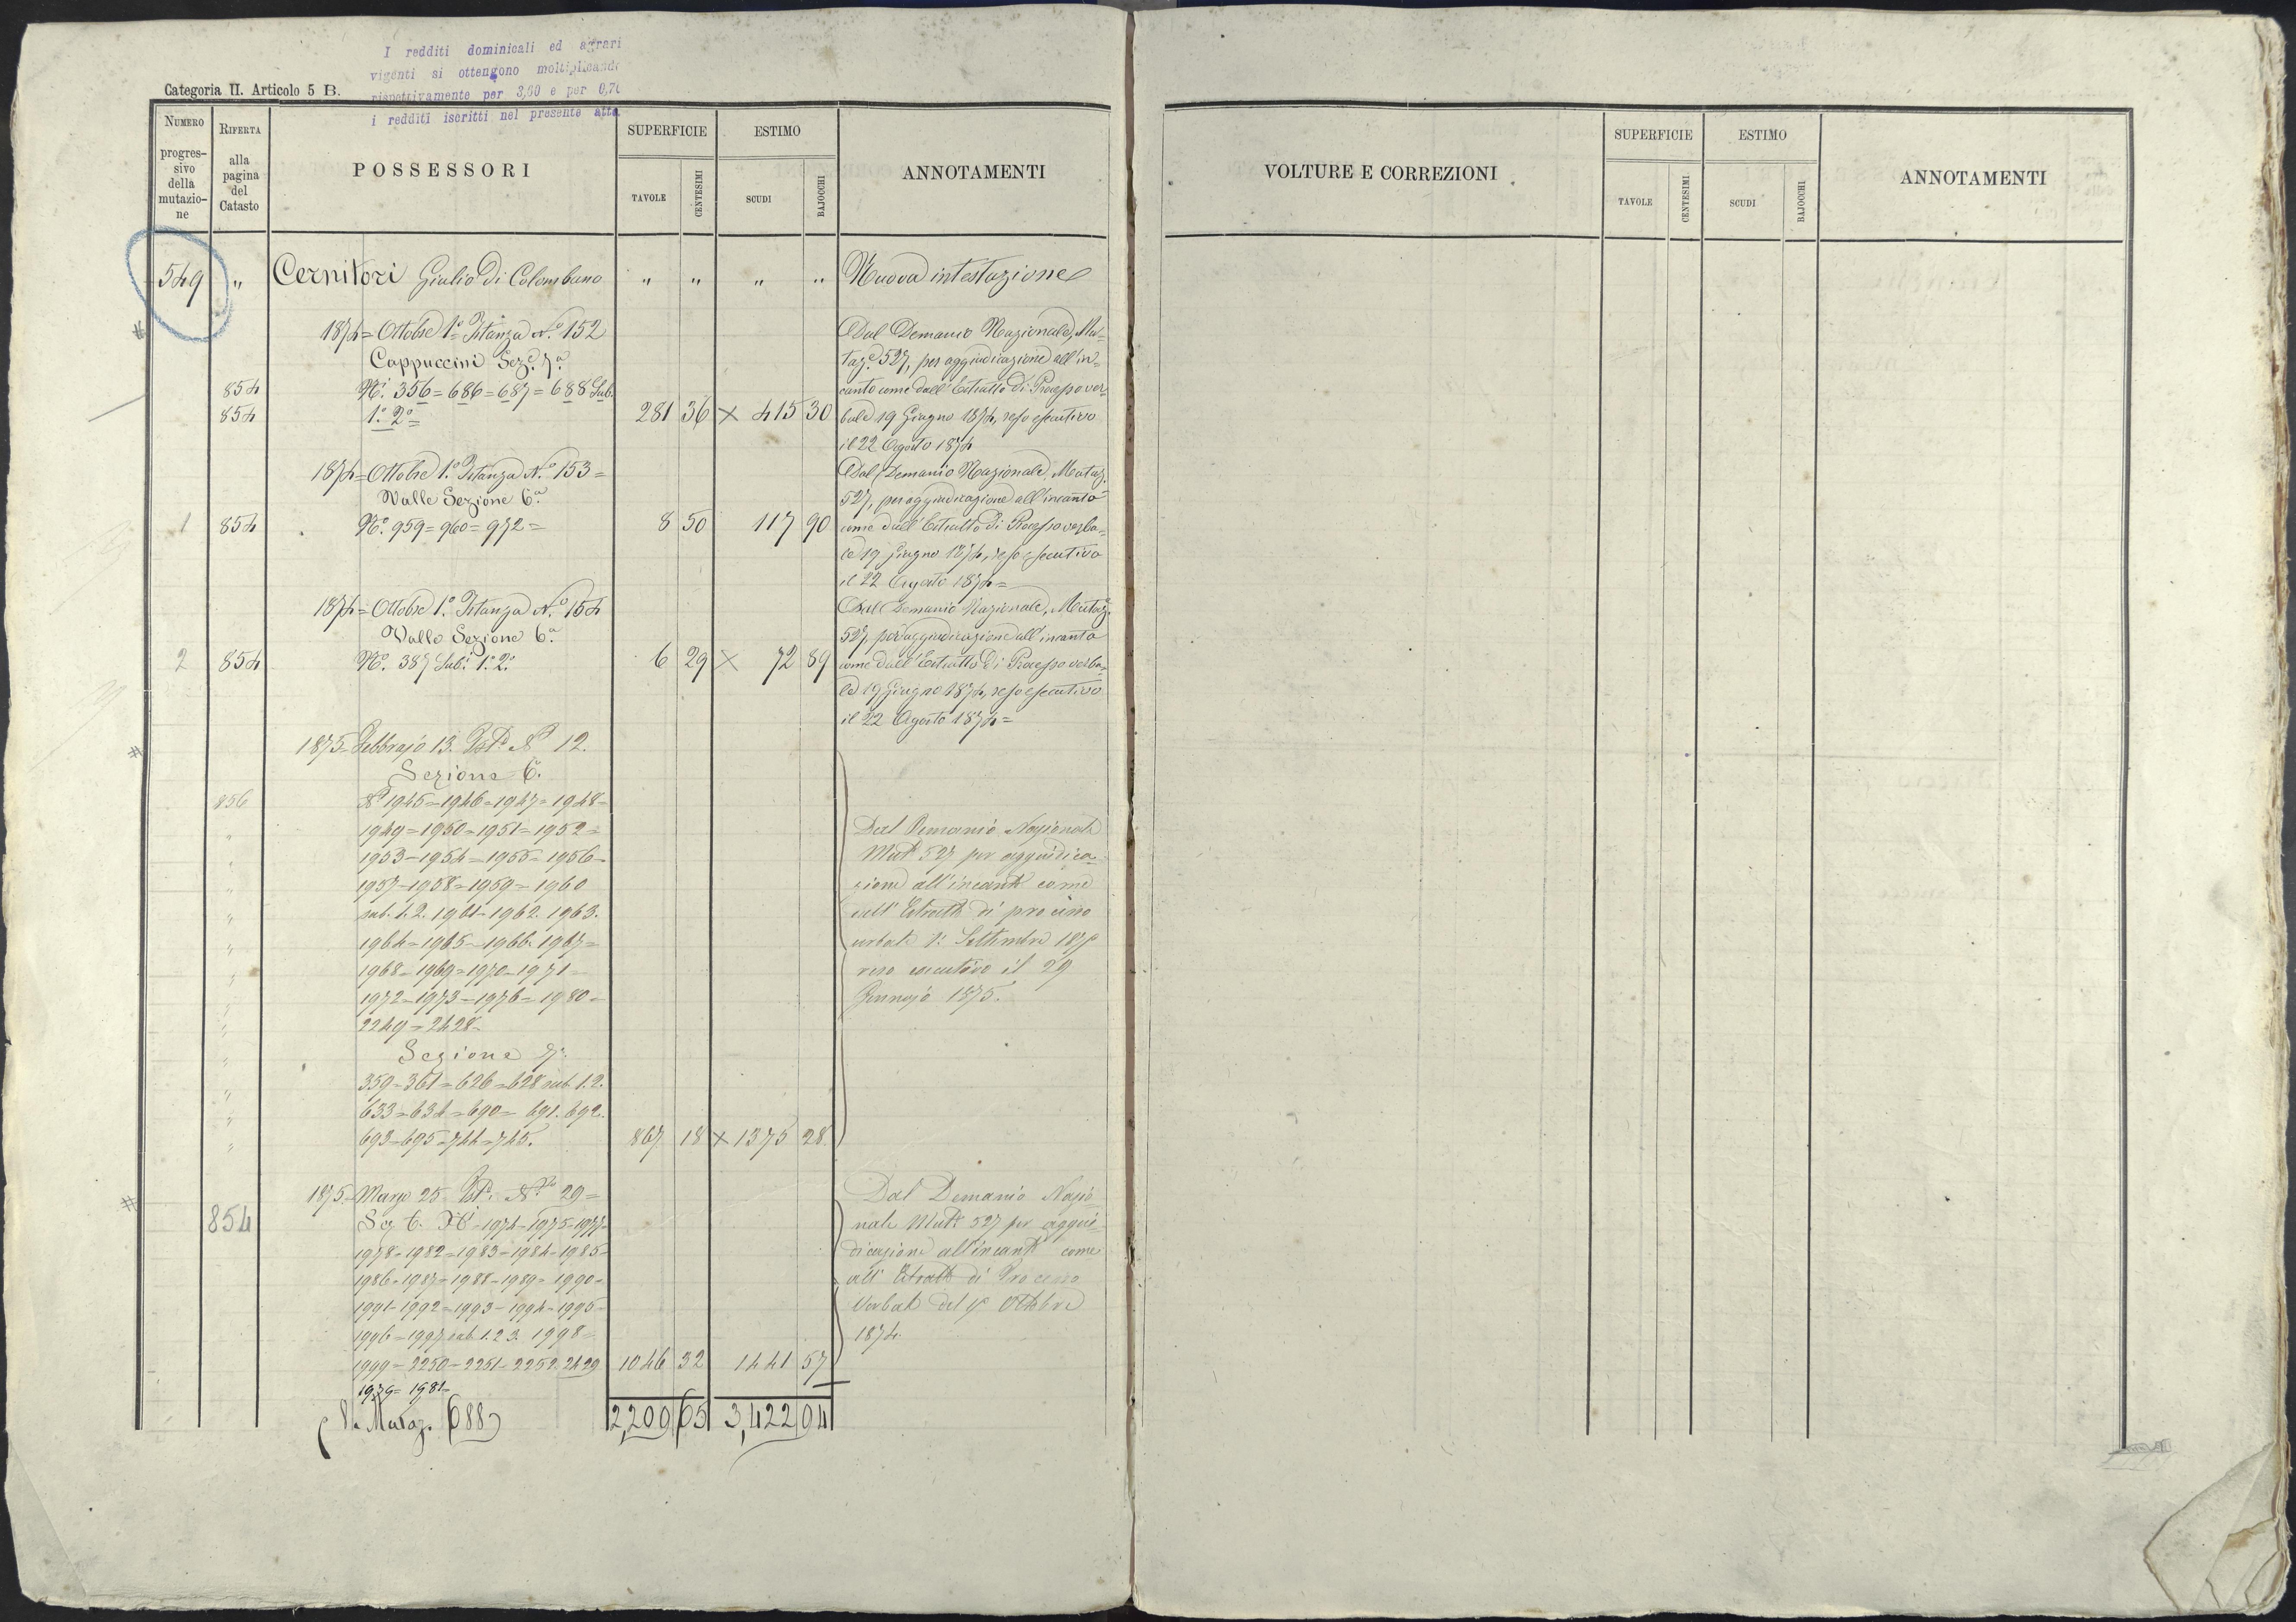 I redditi dominicali ed agrari
vigenti si ottengono moltiplicando
rispettivamente per 3,60 e per 0,70
i redditi iscritti nel presente atto
Categoria II. Articolo 5 B.
NUMERO progressivo della mutazione
RIFERTA alla pagina del Catasto
POSSESSORI
SUPERFICIE
TAVOLE
CENTESIMI
ESTIMO
SCUDI
BAJOCCHI
ANNOTAMENTI
VOLTURE E CORREZIONI
SUPERFICIE
TAVOLE
CENTESIMI
ESTIMO
SCUDI
BAJOCCHI
ANNOTAMENTI
549 " Cernitori Giulio di Colombano " " " " Nuova intestazione
1874 = Ottobre 1° Istanza N.° 152
Cappuccini Sez.e 7.a
854 N.i 356 = 686 = 687 = 688 Sub.
854 1.° 2.° 281 36 × 415 30
Dal Demanio Nazionale, Mu-
taz.e 527, per aggiudicazione all'in-
canto come dall'Estratto di Processo ver-
bale 19 Giugno 1874, reso esecutivo
il 22 Agosto 1874
1874 = Ottobre 1.° Istanza N.° 153 =
Valle Sezione 6.a
1 854 N.° 959 = 960 = 972 = 8 50 117 90
Dal Demanio Nazionale, Mutaz.
527, per aggiudicazione all'incanto
come dall'Estratto di Processo verba-
le 19 Giugno 1874, reso esecutivo
il 22 Agosto 1874 =
1874 = Ottobre 1.° Istanza N.° 154
Valle Sezione 6.a
2 854 N.° 387 Sub.i 1.° 2.° 6 29 × 72 89
Dal Demanio Nazionale, Mutaz.
527, per aggiudicazione all'incanto
come dall'Estratto di Processo verba-
le 19 Giugno 1874, reso esecutivo
il 22 Agosto 1874 =
1875 = Febbrajo 13. Ist.a N.o 12.
Sezione 6.
856 N.i 1945 = 1946 = 1947 = 1948 =
" 1949 = 1950 = 1951 = 1952 =
" 1953 = 1954 = 1955 = 1956 =
" 1957 = 1958 = 1959 = 1960
" sub. 1. 2. 1961 = 1962. 1963.
" 1964 = 1965 = 1966. 1967 =
" 1968 = 1969 = 1970 = 1971 =
" 1972 = 1973 = 1976 = 1980 =
" 2249 = 2428 =
" Sezione 7.
" 359 = 361 = 626 = 628 sub. 1. 2.
" 633 = 634 = 690 = 691. 692.
" 693 = 695 = 744 = 745. 867 18 × 1375 28
Dal Demanio Nazionale
Mut.e 527 per aggiudica-
zione all'incanto come
dall'Estratto di processo
verbale 1.° Settembre
reso esecutivo il 29
Gennajo 1875.
1875 = Marzo 25 Ist. N.o 29 =
854 Sez. 6. N.i 1974 = 1975 = 1977 =
1978 = 1982 = 1983 = 1984 = 1985 =
1986 = 1987 = 1988 = 1989 = 1990 =
1991 = 1992 = 1993 = 1994 = 1995 =
1996 = 1997 sub. 1. 2 3. 1998 =
1999 = 2250 = 2251 = 2252. 2429 1046 32 1441 57
1979 = 1981 =
Dal Demanio Nazio-
nale Mut.e 527 per aggiu-
dicazione all'incanto come
all'Estratto di Processo
Verbale del Ottobre
1874.
(Va Mutaz. 688) 2,209 65 3,422 94